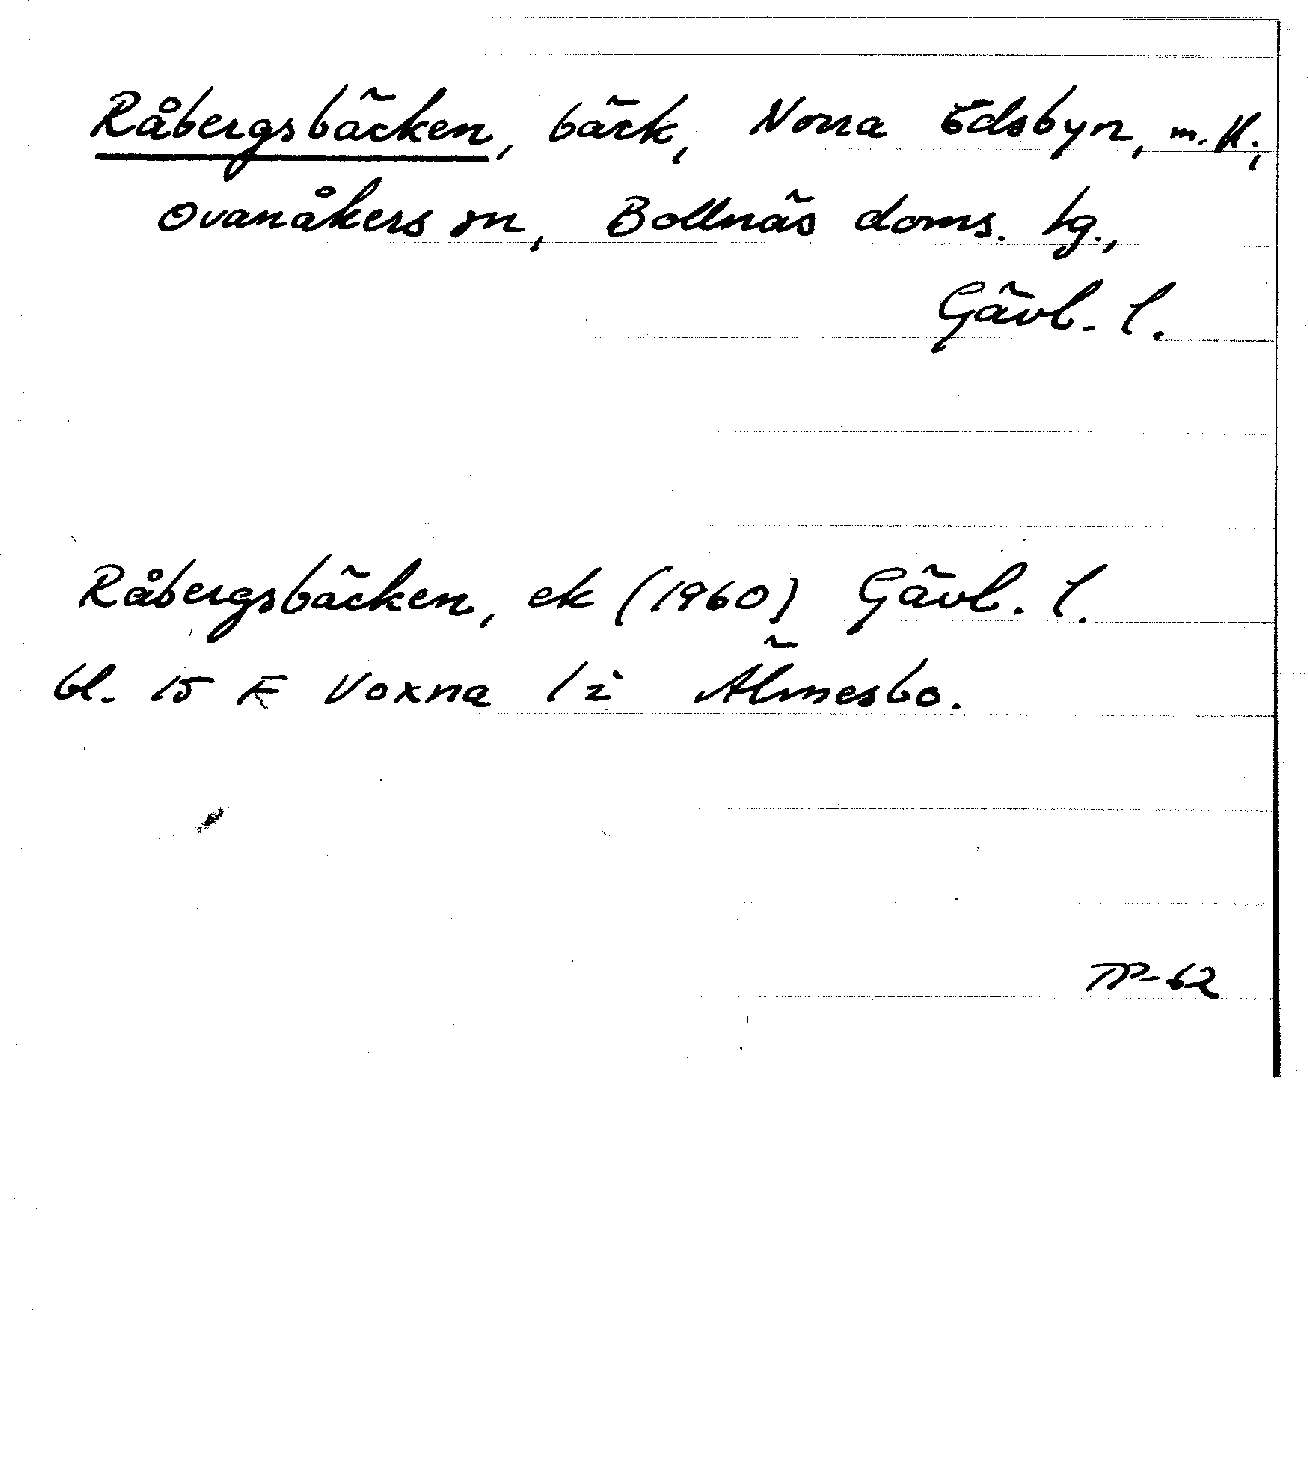 Råbergsbäcken, bäck, Norra Edsbyn, m.fl.,
Ovanåkers sn, Bollnäs doms. tg.,
Gävl. l.
Råbergsbäcken, ek (1960) Gävl. l.
bl. 15 F Voxna 1 i Älmesbo.
TP-62